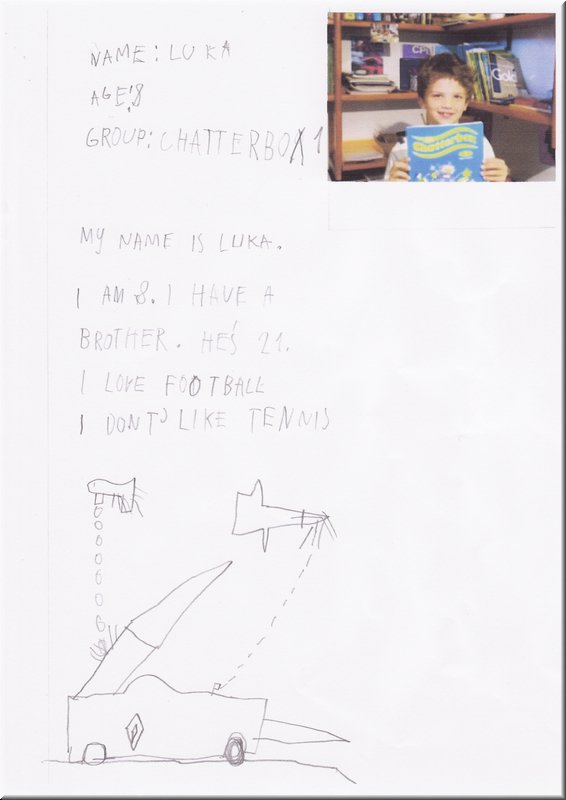 NAME: LUKA
AGE: 8
GROUP: CHATTERBOX 1
Chatterbox
Gold
MY NAME IS LUKA.
I AM 8. I HAVE A
BROTHER. HE'S 21.
I LOVE FOOTBALL
I DONT' LIKE TENNIS